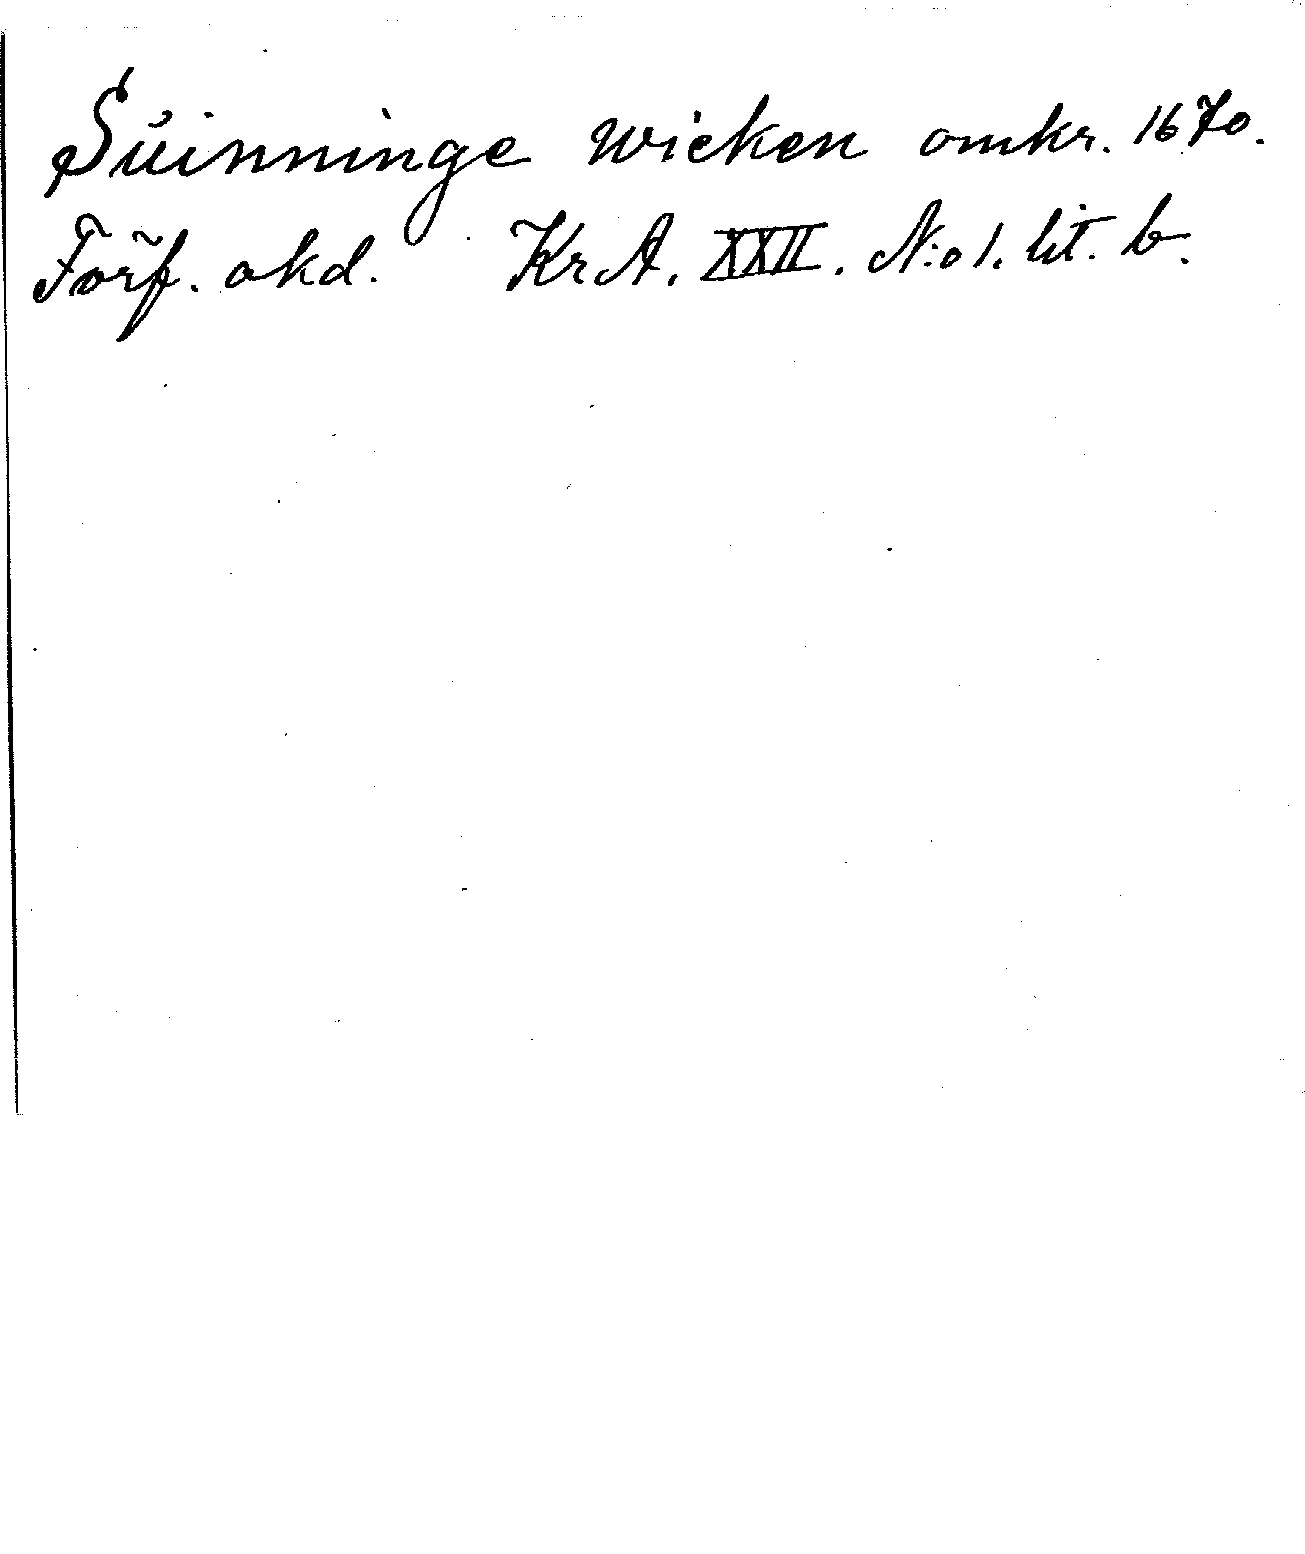 Sŭinninge wieken omkr. 1670.
Förf. okd. KrA. XXII. N:o 1. lit. b.